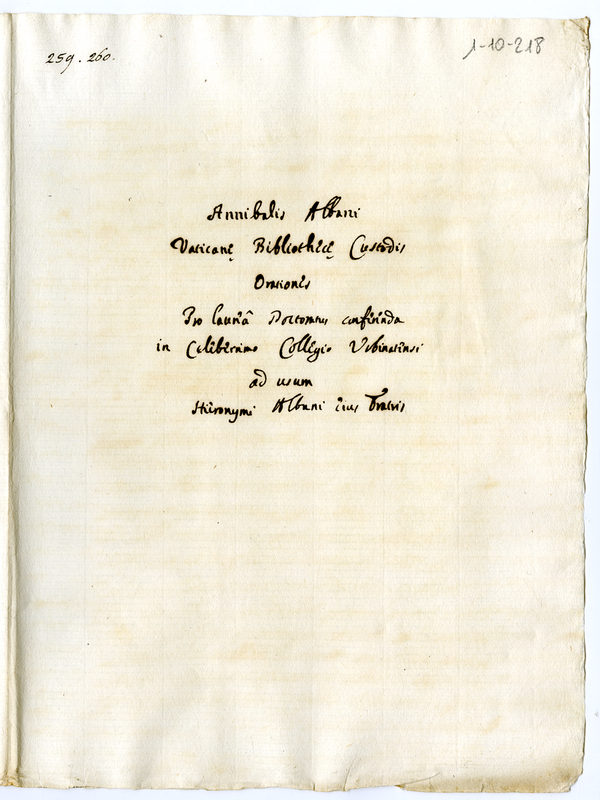 259. 260.
1-10-218
Annibalis Albani
Vaticanę Bibliothecę Custodis
Orationes
Pro laureâ Doctoratus conferenda
in Celeberrimo Collegio Urbinatensi
ad usum
Hieronymi Albani eius Fratris